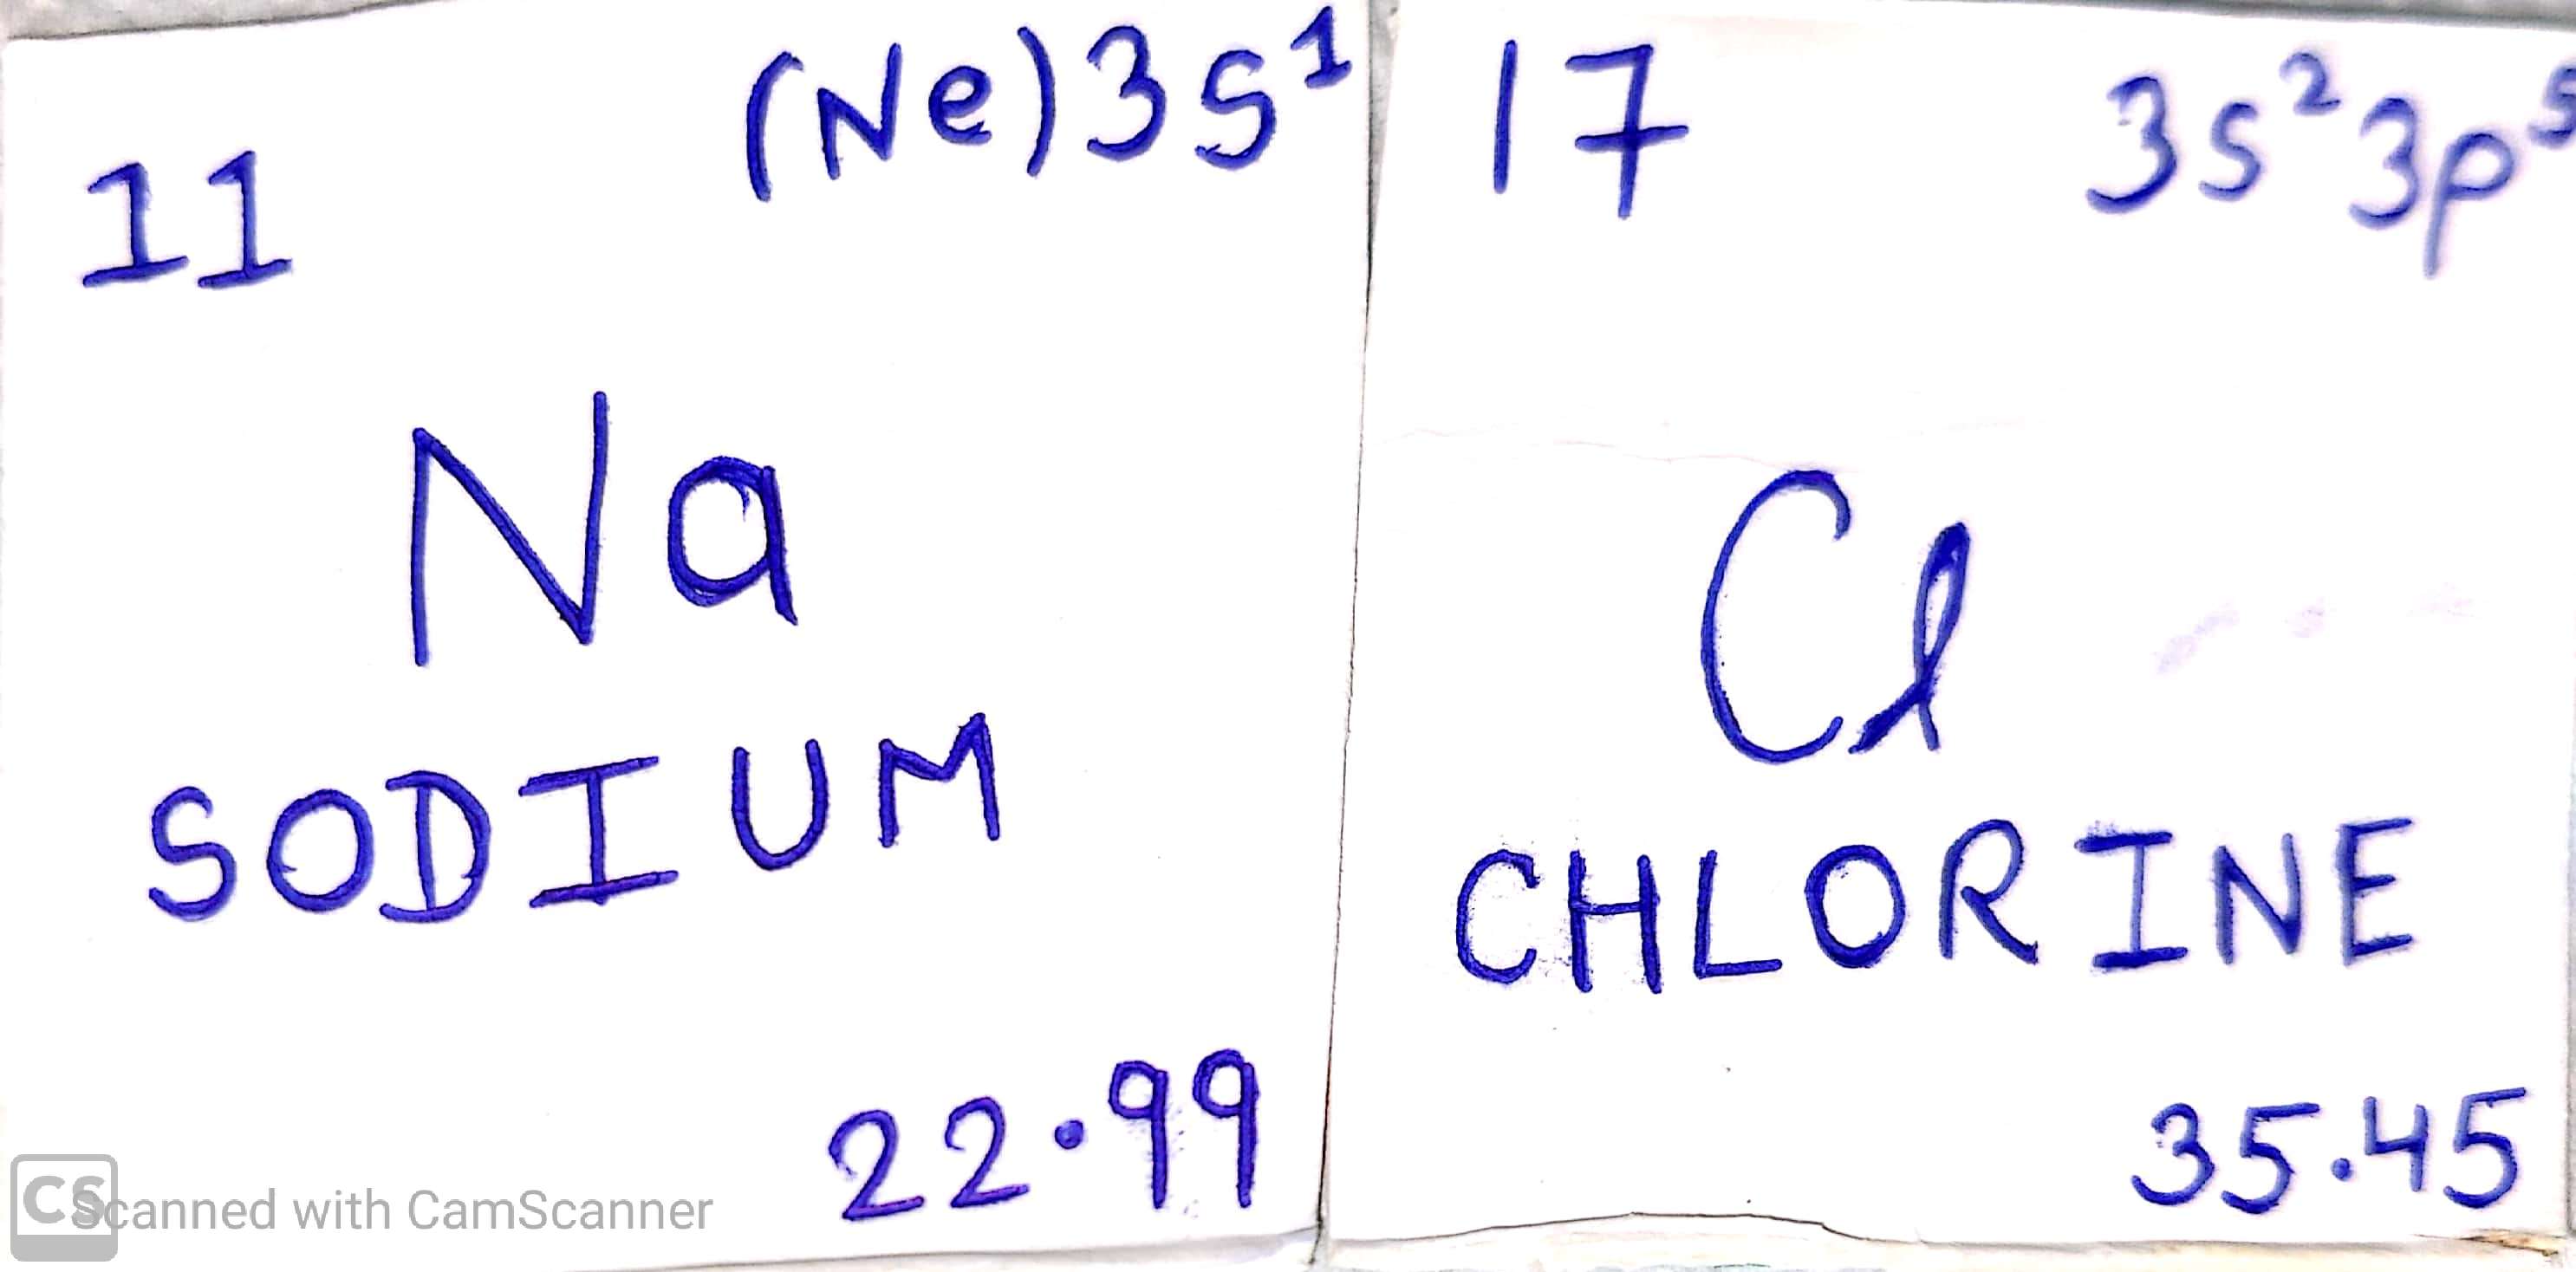 11 (Ne)3s¹
Na
SODIUM
22.99
17 3s²3p⁵
Cl
CHLORINE
35.45
CS
Scanned with CamScanner